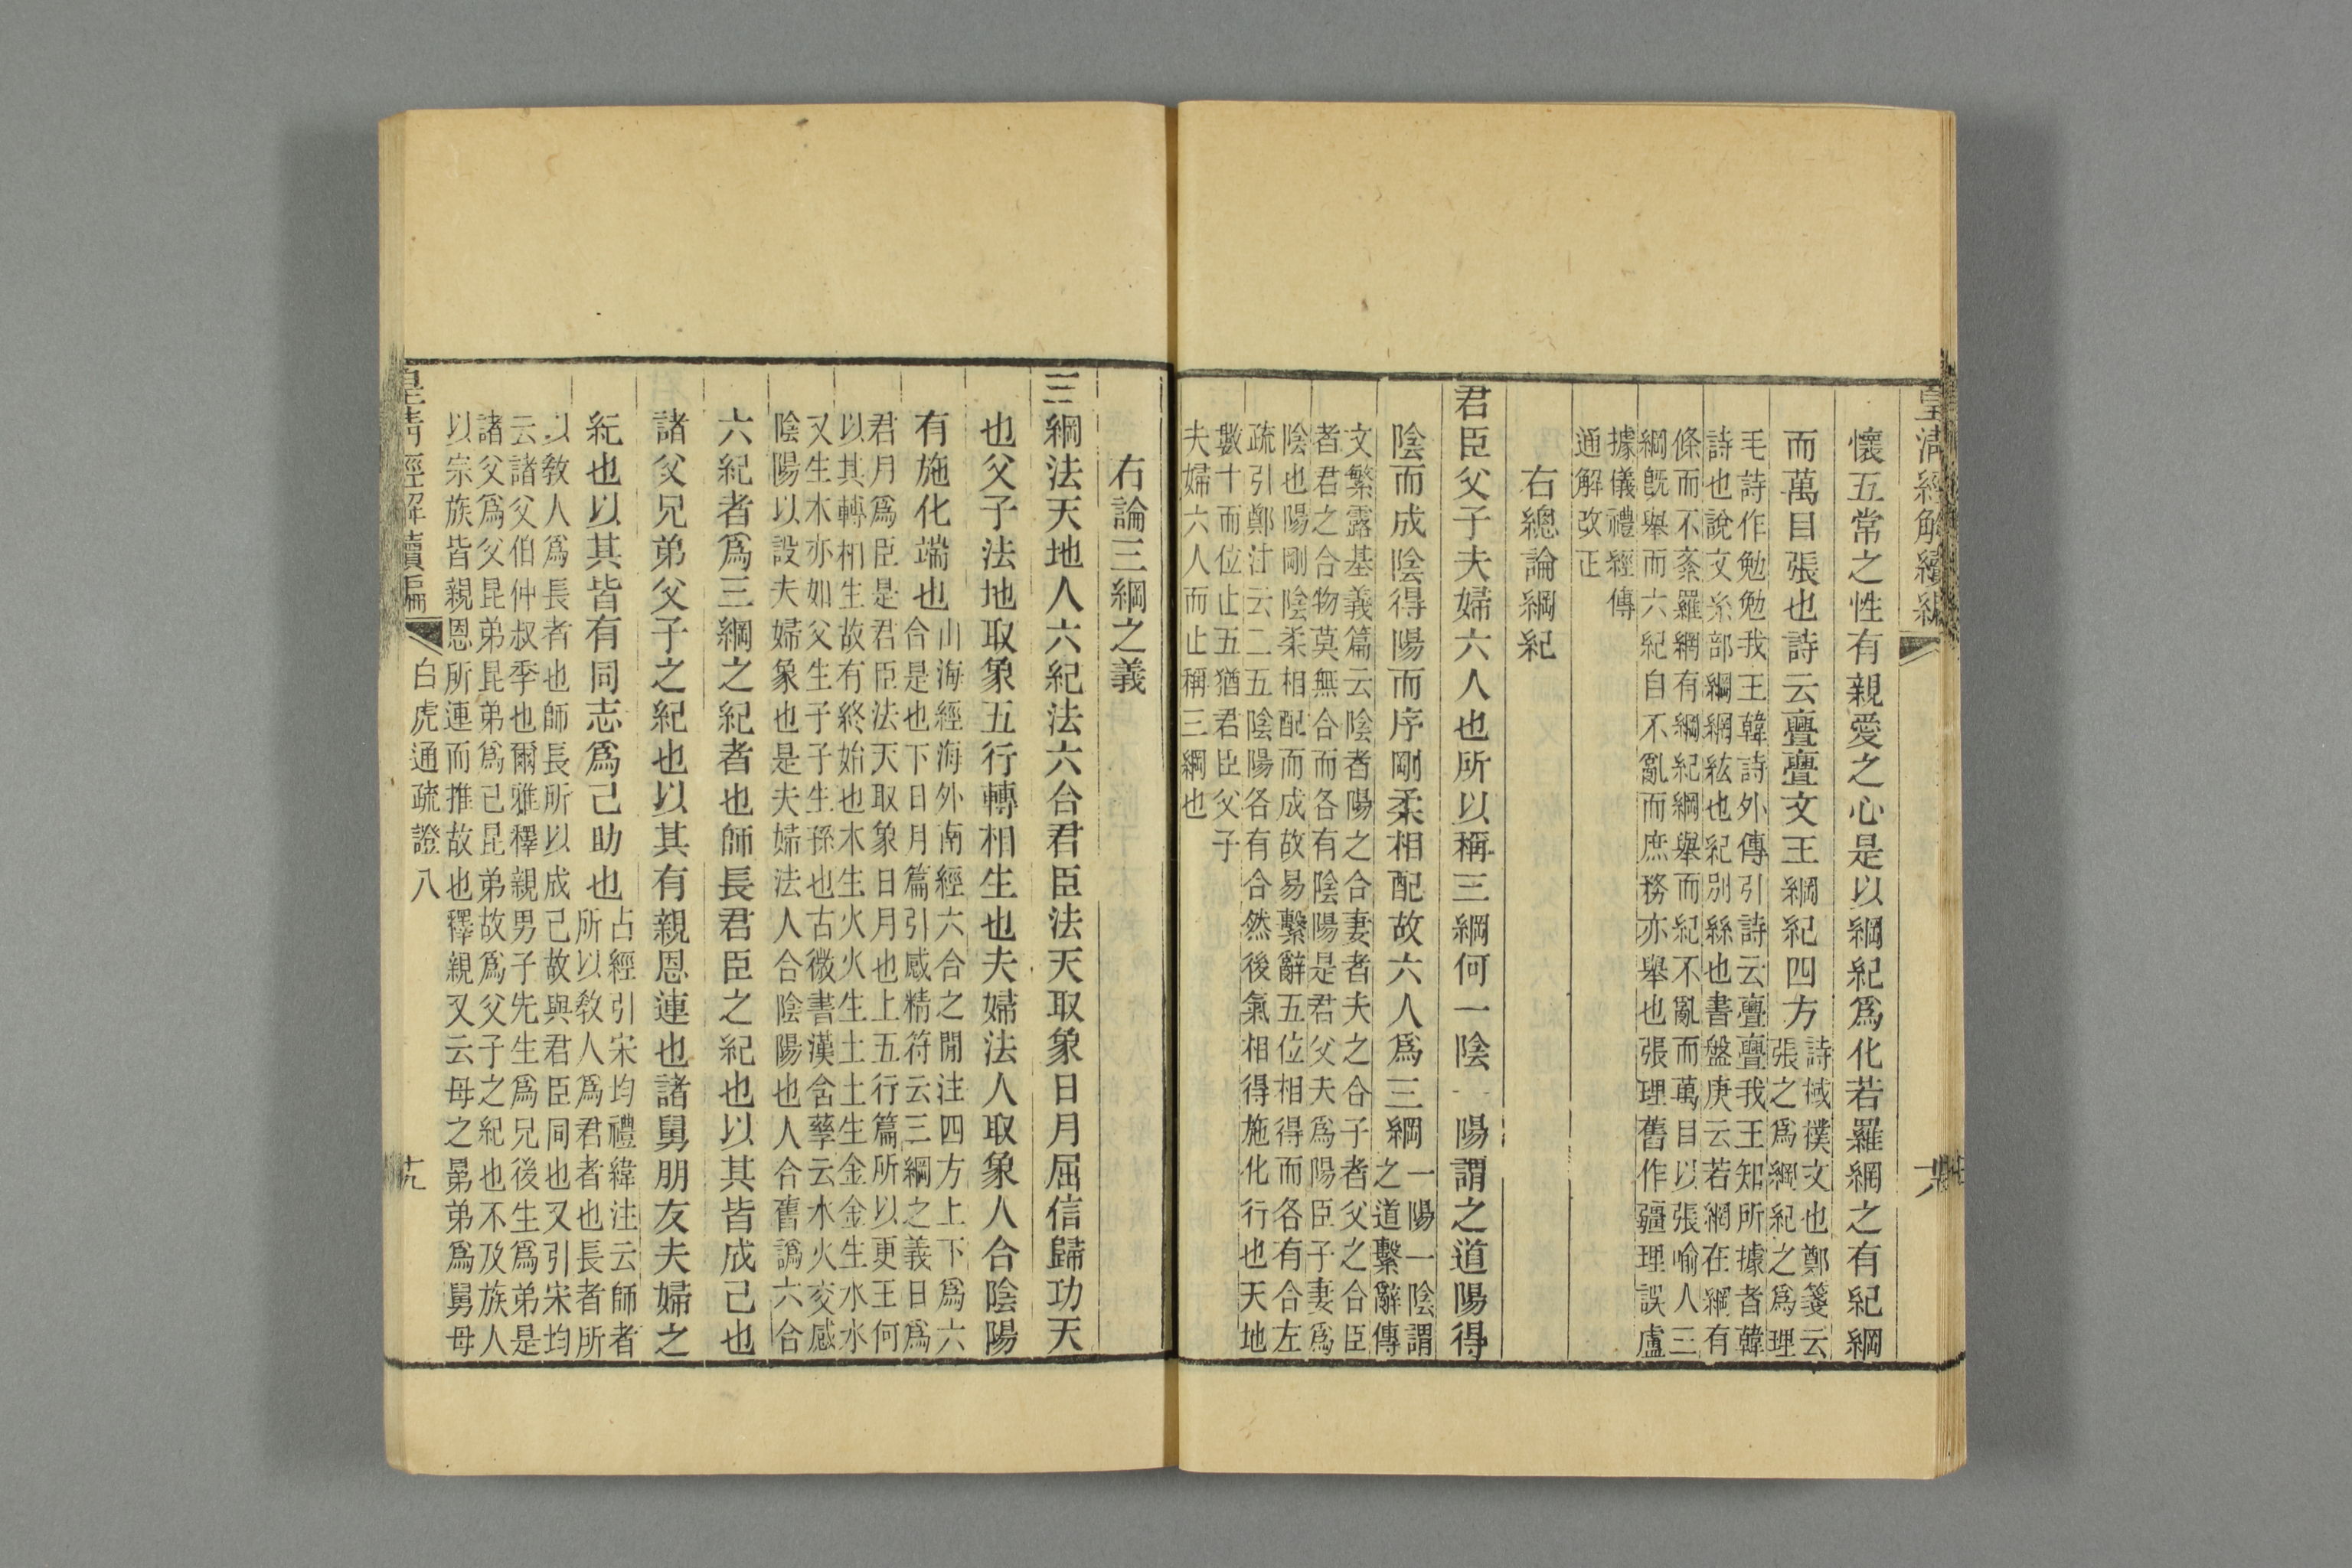 皇清經解續編
懷五常之性有親愛之心是以綱紀爲化若羅網之有紀綱
而萬目張也詩云亹亹文王綱紀四方詩棫樸文也鄭箋云
張之爲綱紀之爲理
毛詩作勉勉我王韓詩外傳引詩云亹亹我王知所據者韓
詩也說文糸部綱網紘也紀別絲也書盤庚云若網在綱有
條而不紊羅網有綱紀綱舉而紀不亂而萬目以張喻人三
綱旣舉而六紀自不亂而庶務亦舉也張理舊作疆理誤盧
據儀禮經傳
通解改正
右總論綱紀
君臣父子夫婦六人也所以稱三綱何一陰一陽謂之道陽得
陰而成陰得陽而序剛柔相配故六人爲三綱一陽一陰謂
之道繫辭傳
文繁露基義篇云陰者陽之合妻者夫之合子者父之合臣
者君之合物莫無合而各有陰陽是君父夫爲陽臣子妻爲
陰也陽剛陰柔相配而成故易繫辭五位相得而各有合左
疏引鄭注云二五陰陽各有合然後氣相得施化行也天地
數十而位止五猶君臣父子
夫婦六人而止稱三綱也
右論三綱之義
三綱法天地人六紀法六合君臣法天取象日月屈信歸功天
也父子法地取象五行轉相生也夫婦法人取象人合陰陽
有施化端也山海經海外南經六合之閒注四方上下爲六
合是也下日月篇引感精符云三綱之義日爲
君月爲臣是君臣法天取象日月也上五行篇所以更王何
以其轉相生故有終始也木生火火生土土生金金生水水
又生木亦如父生子子生孫也古微書漢含孳云水火交感
陰陽以設夫婦象也是夫婦法人合陰陽也人合舊譌六合
六紀者爲三綱之紀者也師長君臣之紀也以其皆成己也
諸父兄弟父子之紀也以其有親恩連也諸舅朋友夫婦之
紀也以其皆有同志爲己助也占經引宋均禮緯注云師者
所以敎人爲君者也長者所
以敎人爲長者也師長所以成己故與君臣同也又引宋均
云諸父伯仲叔季也爾雅釋親男子先生爲兄後生爲弟是
諸父爲父昆弟昆弟爲已昆弟故爲父子之紀也不及族人
以宗族皆親恩所連而推故也釋親又云母之晜弟爲舅母
皇清經解續編
白虎通疏證八